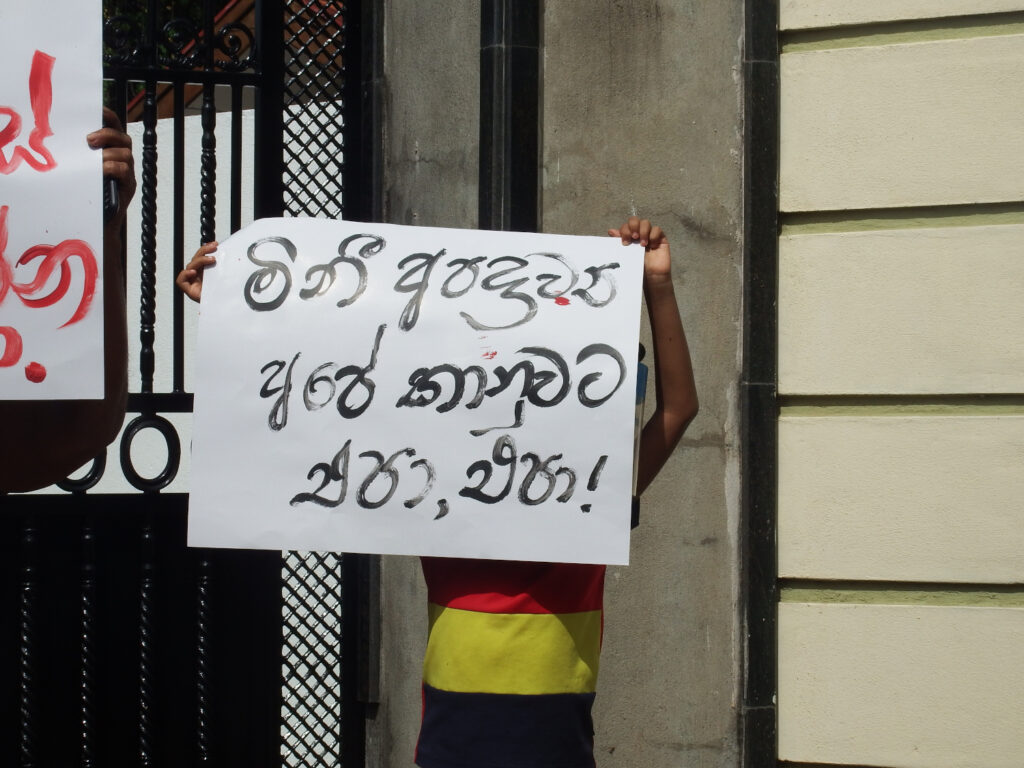 මිනී අපද්‍රව්‍ය
අපේ කානුවට
එපා, එපා!